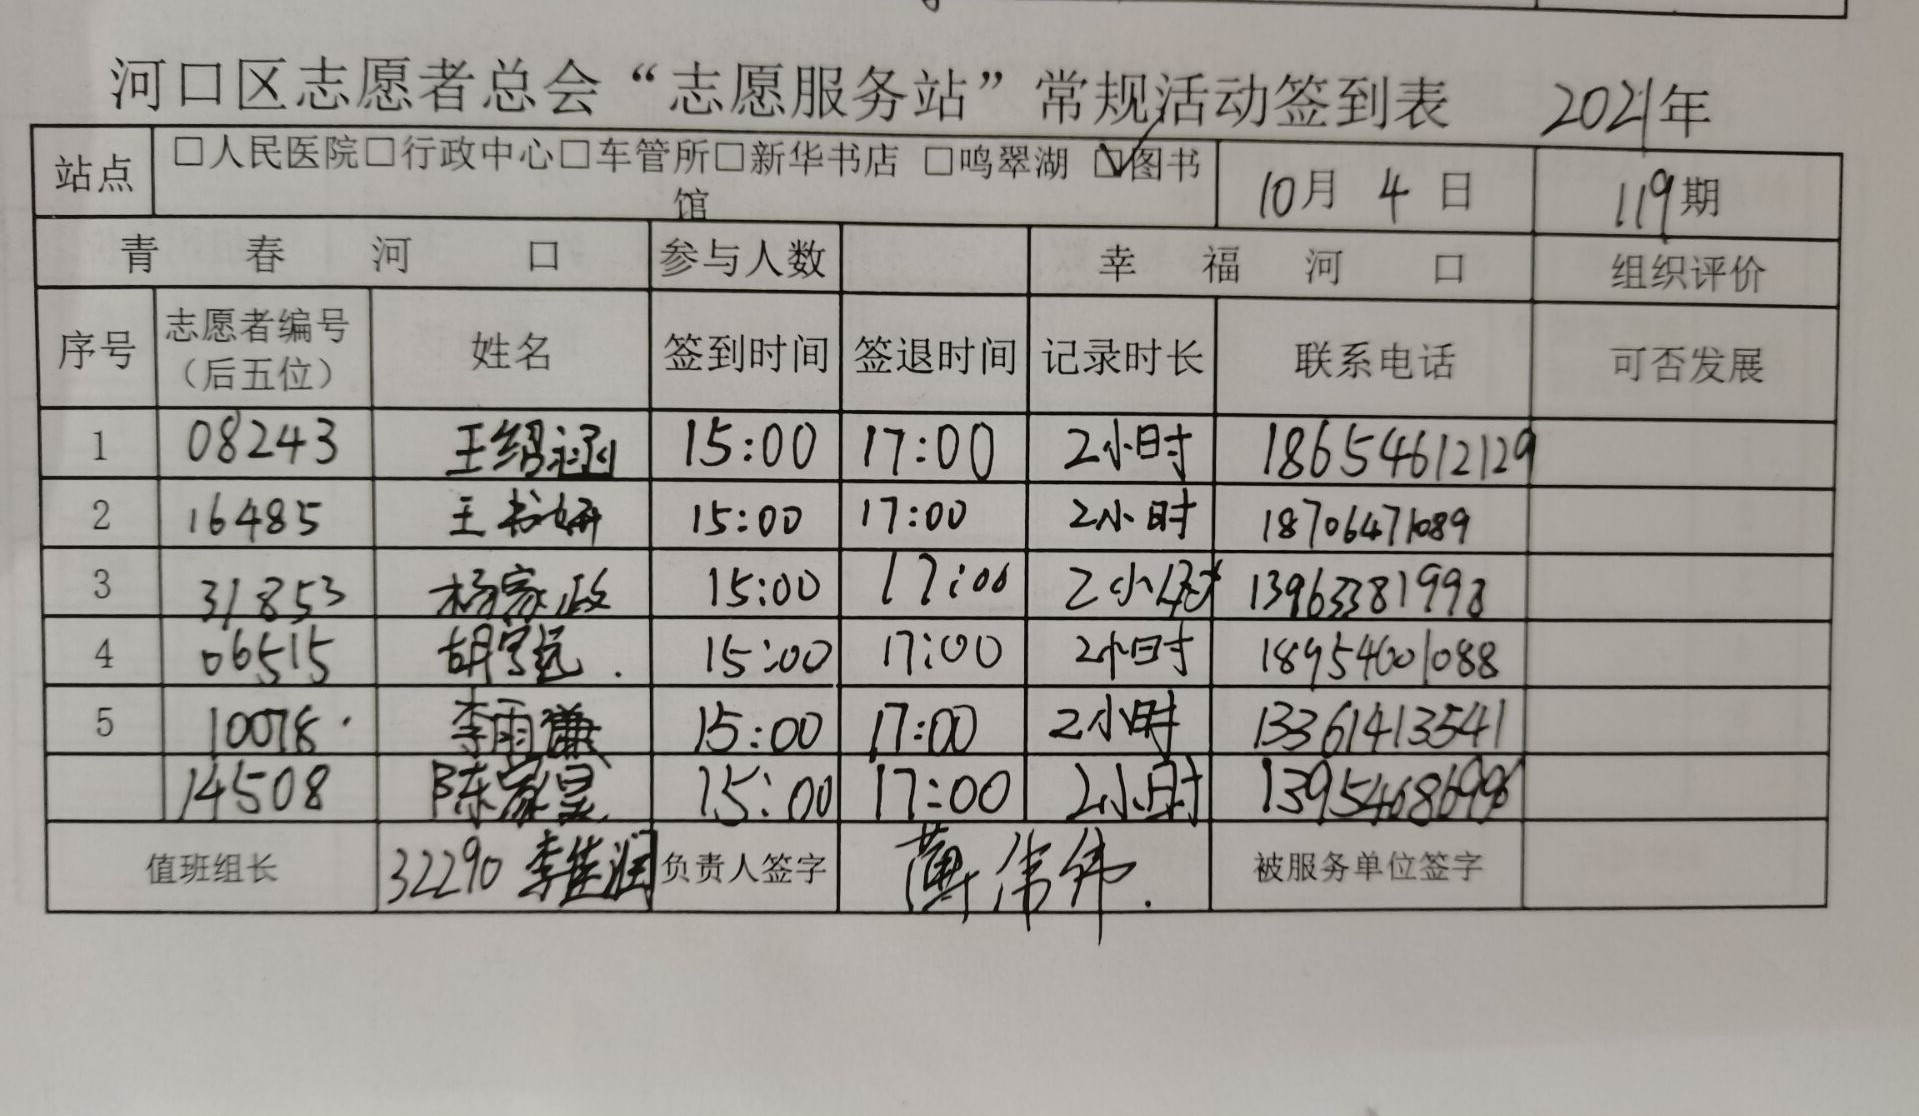 河口区志愿者总会“志愿服务站”常规活动签到表 2021年
站点 □人民医院□行政中心□车管所□新华书店 □鸣翠湖 ☑图书馆 10月 4 日 119期
青 春 河 口 参与人数 幸 福 河 口 组织评价
序号 志愿者编号（后五位） 姓名 签到时间 签退时间 记录时长 联系电话 可否发展
1 08243 王绍涵 15:00 17:00 2小时 18654612129
2 16485 王书妍 15:00 17:00 2小时 18706471089
3 31853 杨家政 15:00 17:00 2小时 13963381998
4 06515 胡宇远 15:00 17:00 2小时 18954001088
5 10078 李雨谦 15:00 17:00 2小时 13361413541
14508 陈家昊 15:00 17:00 2小时
值班组长 32290 李佳润 负责人签字 被服务单位签字